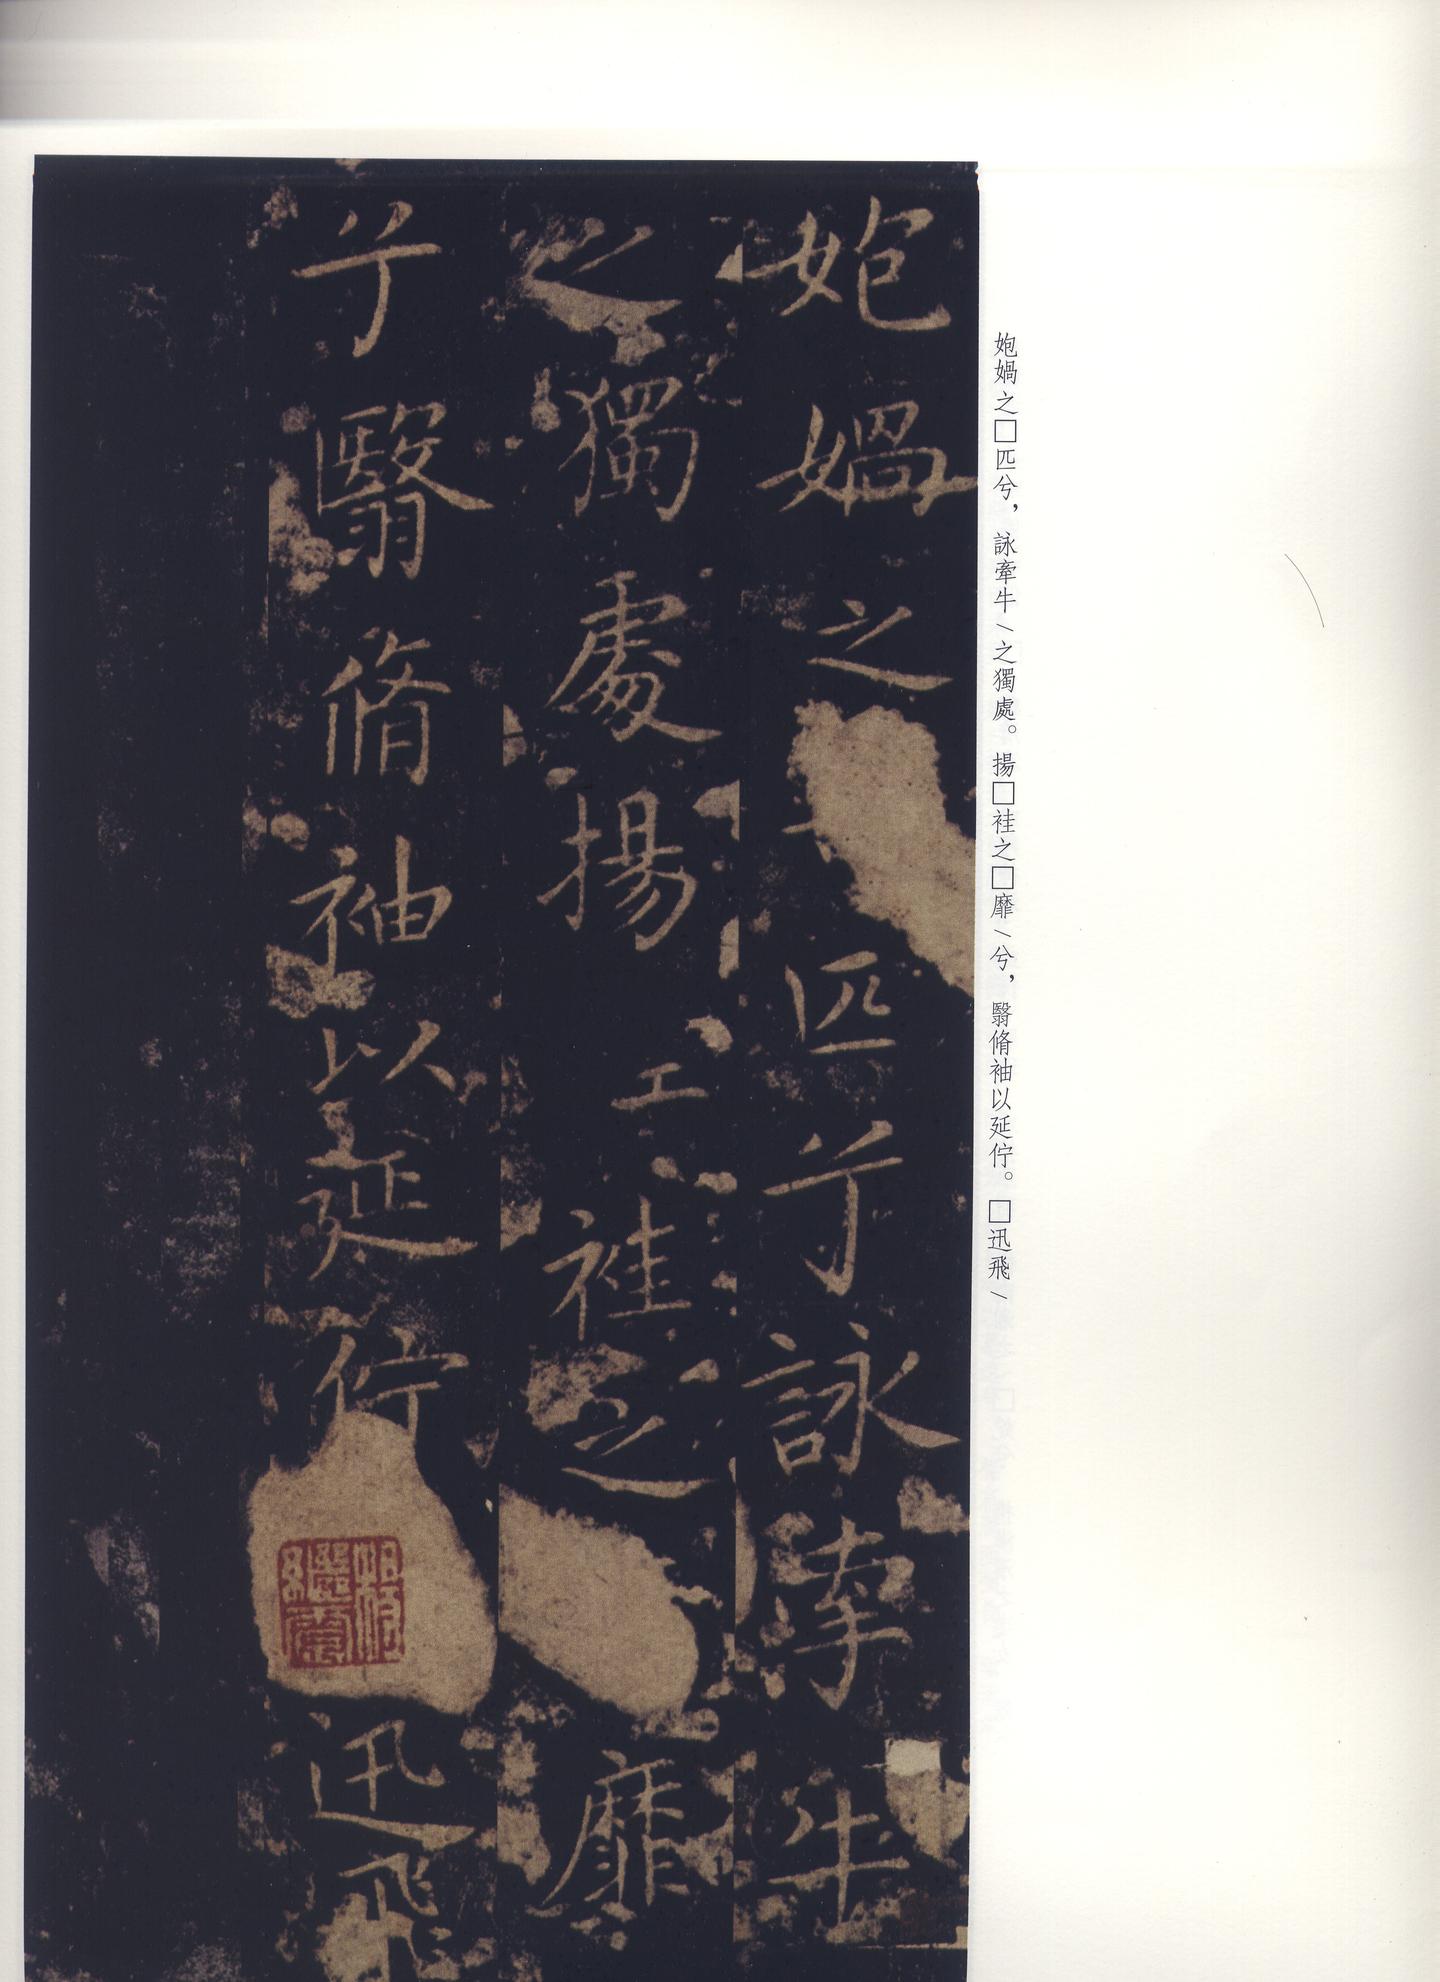 姽媧之
匹兮詠牽牛
之獨處揚
袿之
靡
兮翳脩袖以延佇
迅飛
姽媧之□匹兮，詠牽牛\之獨處。揚□袿之□靡\兮，翳脩袖以延佇。□迅飛\